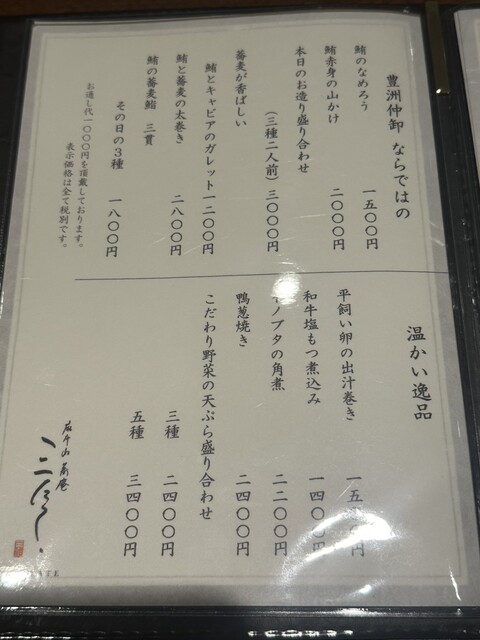 豊洲仲卸 ならではの
鮪のなめろう 一五〇〇円
鮪赤身の山かけ 二〇〇〇円
本日のお造り盛り合わせ
(三種二人前) 三〇〇〇円
蕎麦が香ばしい
鮪とキャビアのガレット 一二〇〇円
鮪と蕎麦の太巻き 二八〇〇円
鮪の蕎麦鮨 三貫
その日の3種 一八〇〇円
お通し代一〇〇〇円を頂戴しております。
表示価格は全て税別です。
温かい逸品
平飼い卵の出汁巻き 一五〇〇円
和牛塩もつ煮込み 一四〇〇円
ノブタの角煮 二二〇〇円
鴨葱焼き 二四〇〇円
こだわり野菜の天ぷら盛り合わせ
三種 二四〇〇円
五種 三四〇〇円